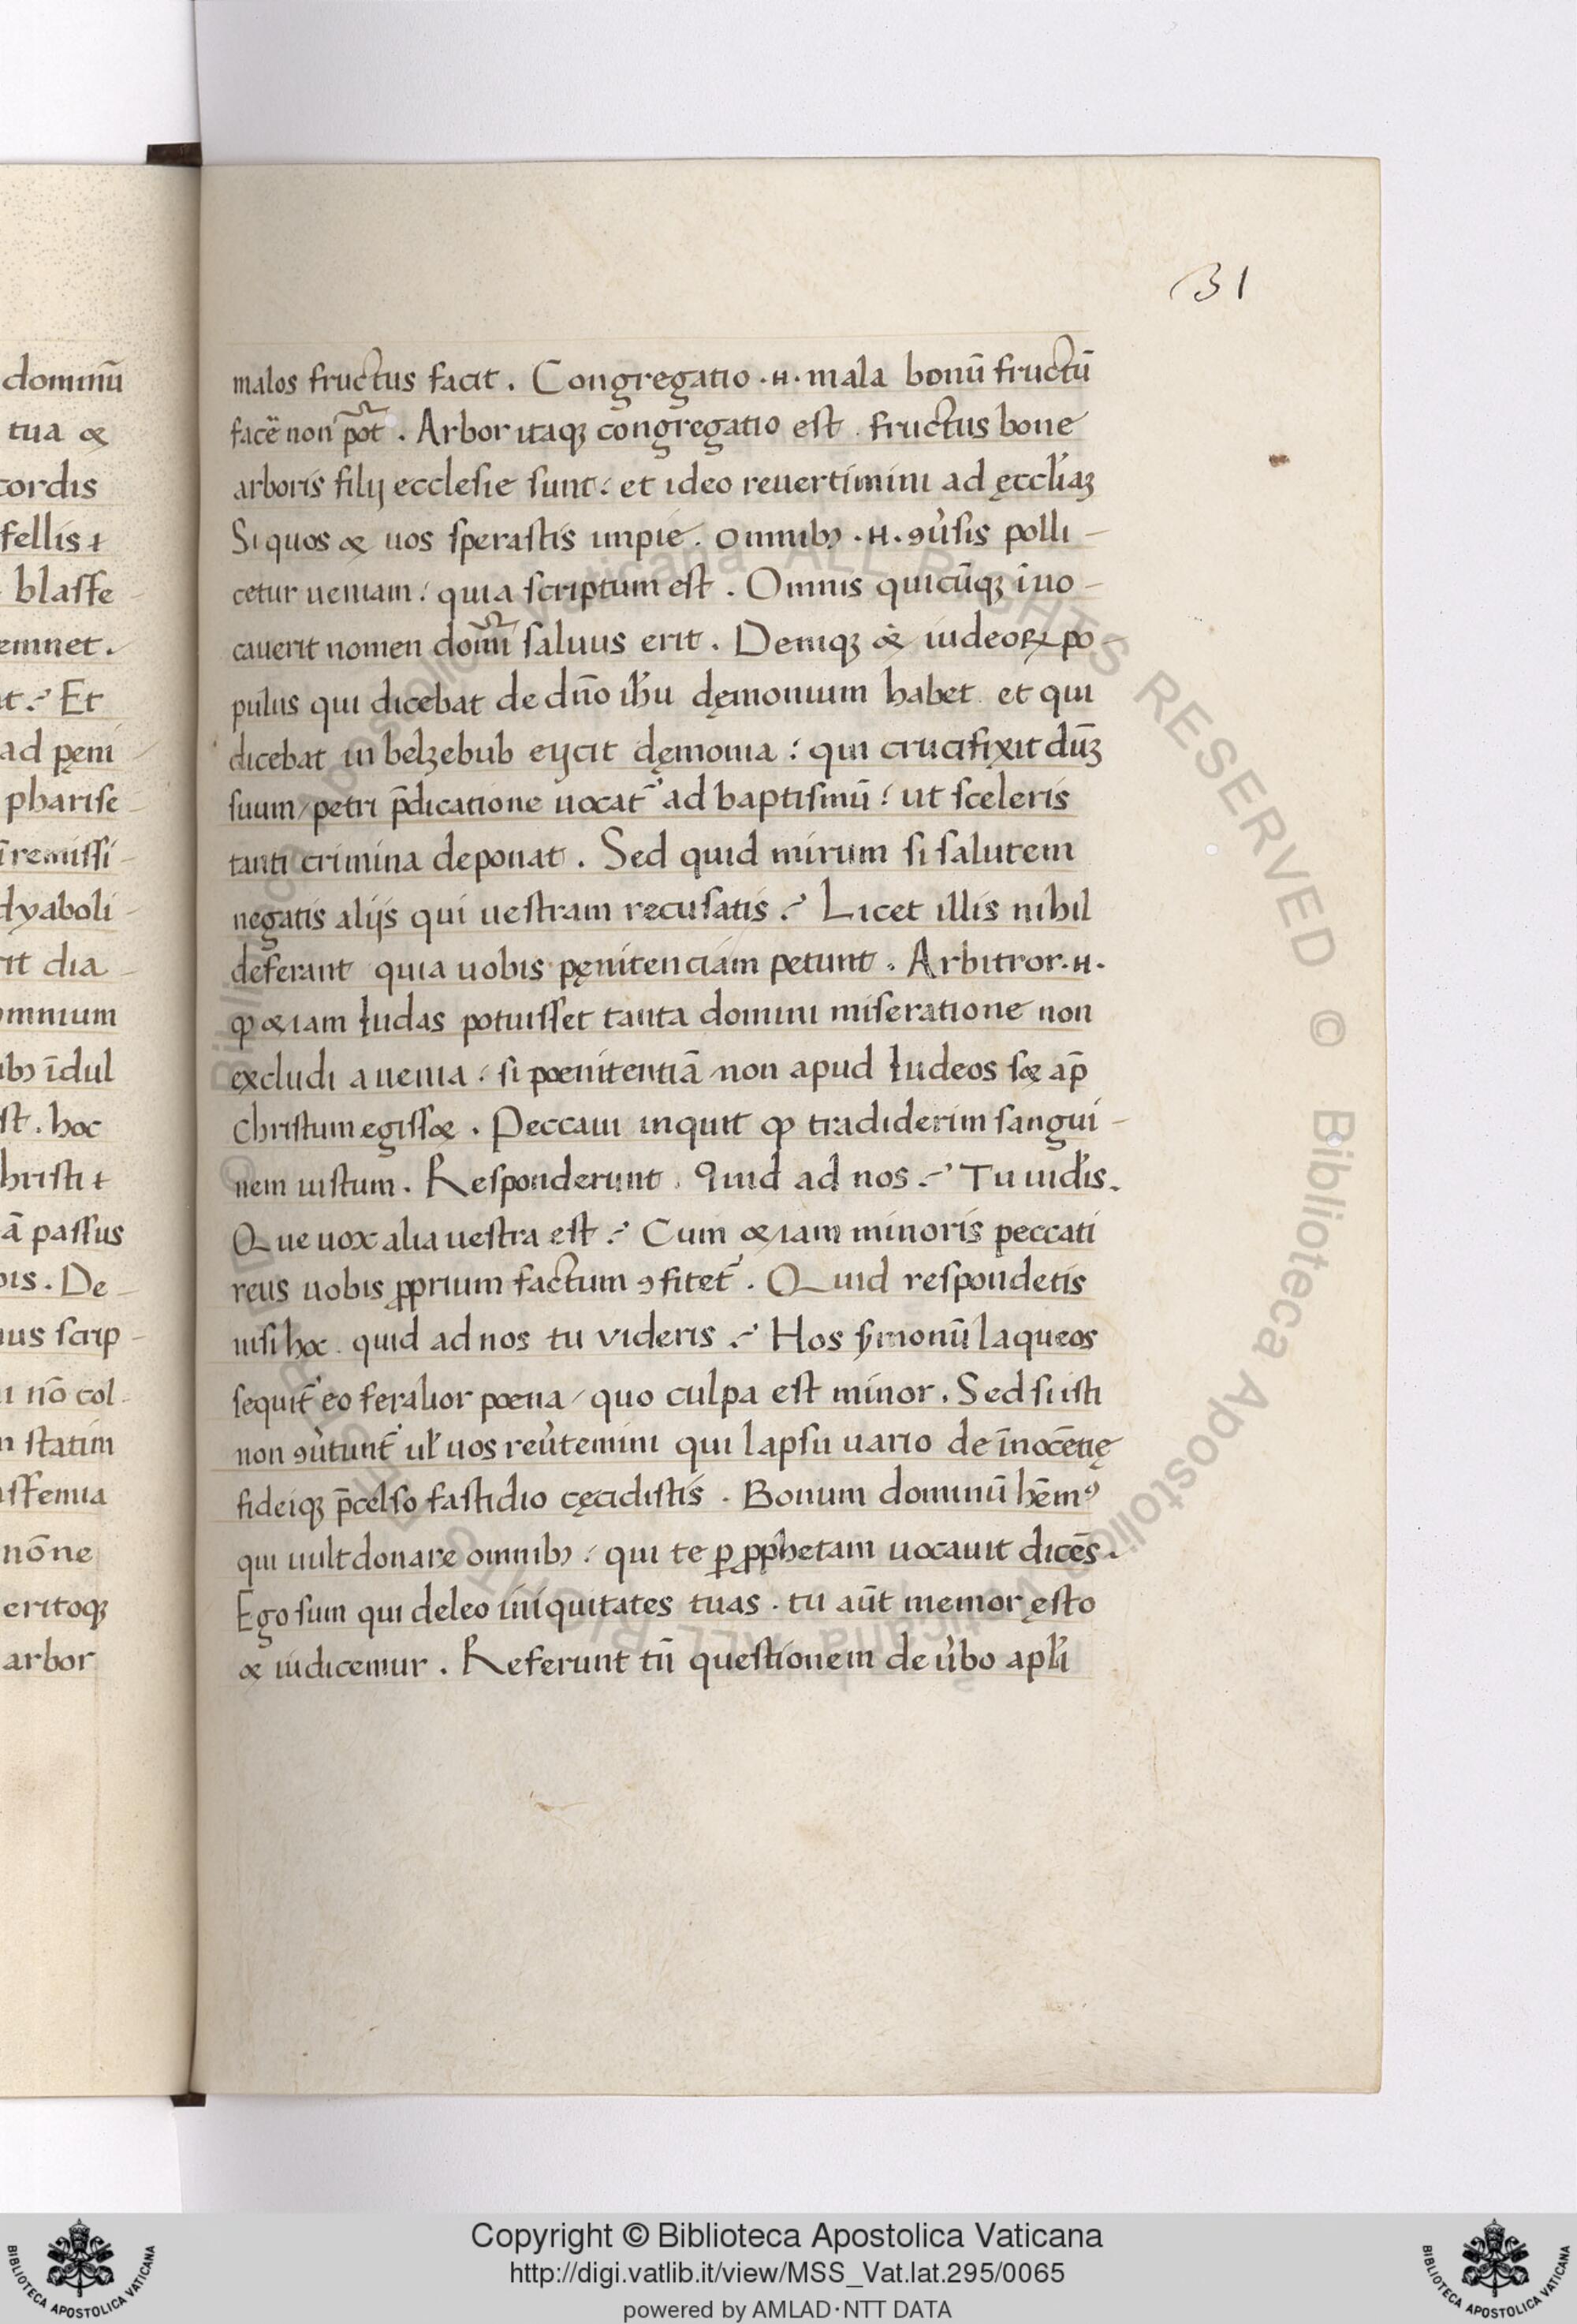 31
dominū
tua &
cordis
fellis ⁊
blasfe
emnet.
Et
ad pęni
pharise
ī remissi
dyaboli
rit dia
omnium
ibꝫ īdul
st. hoc
hristi ⁊
ā passus
bis. De
ius scrip
nō col
statim
asfemia
nōne
eritoqꝫ
arbor
malos fructus facit. Congregatio .H. mala bonū fructū
facē non pōt. Arbor itaqꝫ congregatio est. fructus bone
arboris filij ecclesie sunt: et ideo reuertimini ad ęccl̄iaꝫ
Siquos & uos sperastis impie. Omnibꝫ .H. ꝯu̓sis polli-
cetur ueniam: quia scriptum est. Omnis quicūqꝫ īuo-
cauerit nomen domī saluus erit. Deniqꝫ & iudeoꝝ po-
pulus qui dicebat de dn̄o ih̄u dęmonium habet et qui
dicebat in belzebub eijcit dęmonia: qui crucifixit dūꝫ
suum / petri p̄dicatione uocat᷑ ad baptismū: ut sceleris
tanti crimina deponat. Sed quid mirum si salutem
negatis alijs qui uestram recusatis? Licet illis nihil
deferant quia uobis pęnitenciam petunt. Arbitror .H.
ꝙ &iam Iudas potuisset tanta domini miseratione non
excludi a uenia: si poenitentiā non apud Iudeos s& ap̄
Christum egiss&. Peccaui inquit ꝙ tradiderim sangui-
nem iustum. Responderunt. Quid ad nos? Tu uid̓is.
Que uox alia uestra est? Cum &iam minoris peccati
reus uobis ꝓprium factum ꝯfitet᷑. Quid respondetis
nisi hoc. quid ad nos tu videris? Hos s̓monū laqueos
sequit᷑ eo feralior poena / quo culpa est minor. Sed si isti
non ꝯu̓tunt᷑ ul̓ uos reu̓temini qui lapsu uario de īnocētię
fideiqꝫ p̄celso fastidio cęcidistis. Bonum dominū hēmꝰ
qui uult donare omnibꝫ: qui te ꝑ ꝓphetam uocauit dicēs.
Ego sum qui deleo iniquitates tuas. tu aūt memor ęsto
& iudicemur. Referunt tn̄ questionem de u̓bo apl̓i
Copyright © Biblioteca Apostolica Vaticana
http://digi.vatlib.it/view/MSS_Vat.lat.295/0065
powered by AMLAD·NTT DATA
BIBLIOTECA APOSTOLICA VATICANA
BIBLIOTECA APOSTOLICA VATICANA